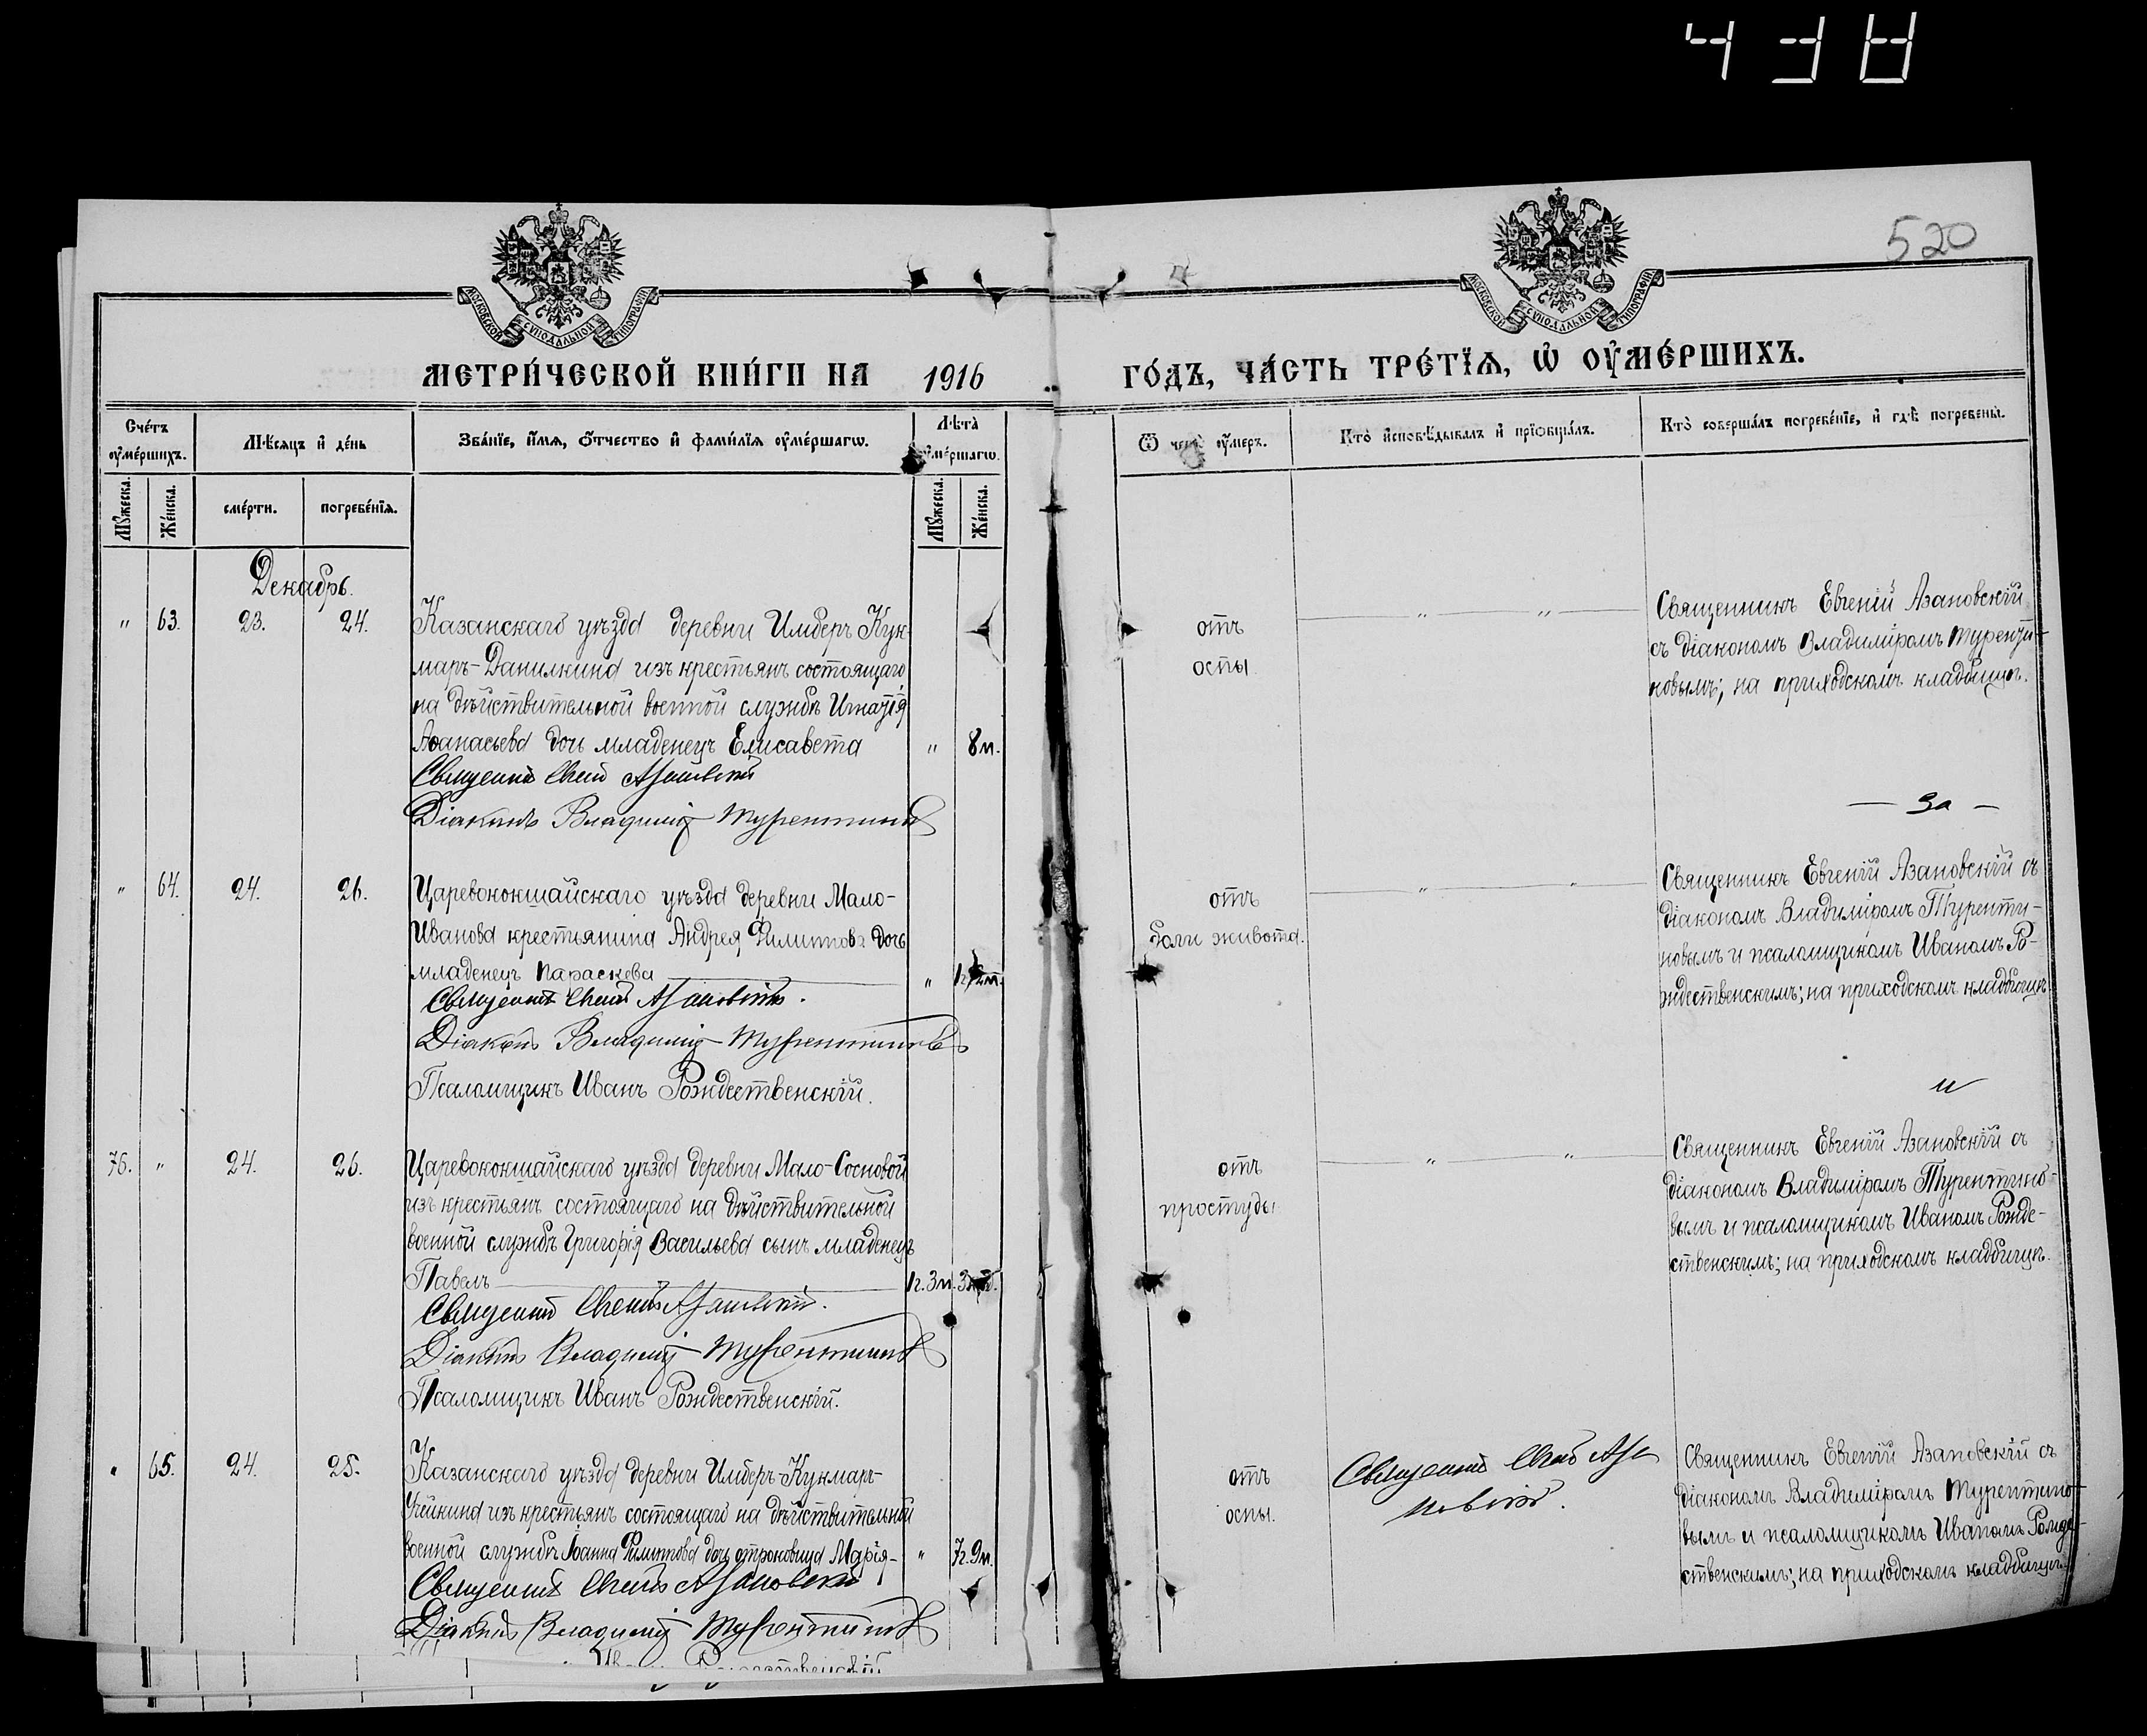 438
520
МОСКОВСКОЙ СѴНОДАЛЬНОЙ ТИПОГРАФІИ
МОСКОВСКОЙ СѴНОДАЛЬНОЙ ТИПОГРАФІИ
МЕТРИ́ЧЕСКОЙ КНИ́ГИ НА 1916 ГО́ДЪ, ЧА́СТЬ ТРЕ́ТЇѦ, Ѡ ОУ҆МЕ́РШИХЪ.
Сче́тъ оу҆ме́ршихъ.
Мѣ́сяцъ и҆ де́нь
Зва́нїе, и҆́мѧ, ѻ҆́тчество и҆ фами́лїѧ оу҆ме́ршагѡ.
Лѣ́та оу҆ме́ршагѡ.
Ѿ чегѡ̀ оу҆́меръ.
Кто̀ и҆сповѣ́дывалъ и҆ прїѡбща́лъ.
Кто̀ соверша́лъ погребе́нїе, и҆ гдѣ̀ погребены̀.
Мꙋ́жеска.
Же́нска.
сме́рти.
погребе́нїѧ.
Мꙋ́жеска.
Же́нска.
Декабрь.
" 63. 23. 24. Казанскаго уѣзда деревни Имберъ Кук-
маръ-Данилкина изъ крестьянъ состоящаго
на дѣйствительной военной службѣ Игнатія
Аѳанасьева дочь младенецъ Елисавета " 8 м.
Священникъ Евгеній Азановскій
Діаконъ Владиміръ Турентиновъ
отъ
оспы
" "
Священникъ Евгеній Азановскій
съ діакономъ Владиміромъ Туренти-
новымъ; на приходскомъ кладбищѣ.
— За —
" 64. 24. 26. Царевококшайскаго уѣзда деревни Мало-
Иванова крестьянина Андрея Филиппова дочь
младенецъ Параскева "
Священникъ Евгеній Азановскій.
Діаконъ Владиміръ Турентиновъ
Псаломщикъ Иванъ Рождественскій.
отъ
боли живота.
" "
Священникъ Евгеній Азановскій съ
діакономъ Владиміромъ Туренти-
новымъ и псаломщикомъ Иваномъ Ро-
ждественскимъ; на приходскомъ кладбищѣ
и
76. " 24. 26. Царевококшайскаго уѣзда деревни Мало-Сосновой
изъ крестьянъ состоящаго на дѣйствительной
военной службѣ Григорія Васильева сынъ младенецъ
Павелъ 1 г. 3 м.
Священникъ Евгеній Азановскій.
Діаконъ Владиміръ Турентиновъ
Псаломщикъ Иванъ Рождественскій.
отъ
простуды
" "
Священникъ Евгеній Азановскій съ
діакономъ Владиміромъ Турентино-
вымъ и псаломщикомъ Иваномъ Рожде-
ственскимъ; на приходскомъ кладбищѣ.
" 65. 24. 25. Казанскаго уѣзда деревни Имберъ-Кукмаръ-
изъ крестьянъ состоящаго на дѣйствительной
военной службѣ Іоанна Филиппова дочь отроковица Марія- " 7 г. 9 м.
Священникъ Евгеній Азановскій
Діаконъ Владиміръ Турентиновъ
Иванъ Рождественскій
отъ
оспы.
Священникъ Евгеній Аза
новскій.
Священникъ Евгеній Азановскій съ
діакономъ Владиміромъ Турентино-
вымъ и псаломщикомъ Иваномъ Рожде-
ственскимъ; на приходскомъ кладбищѣ.